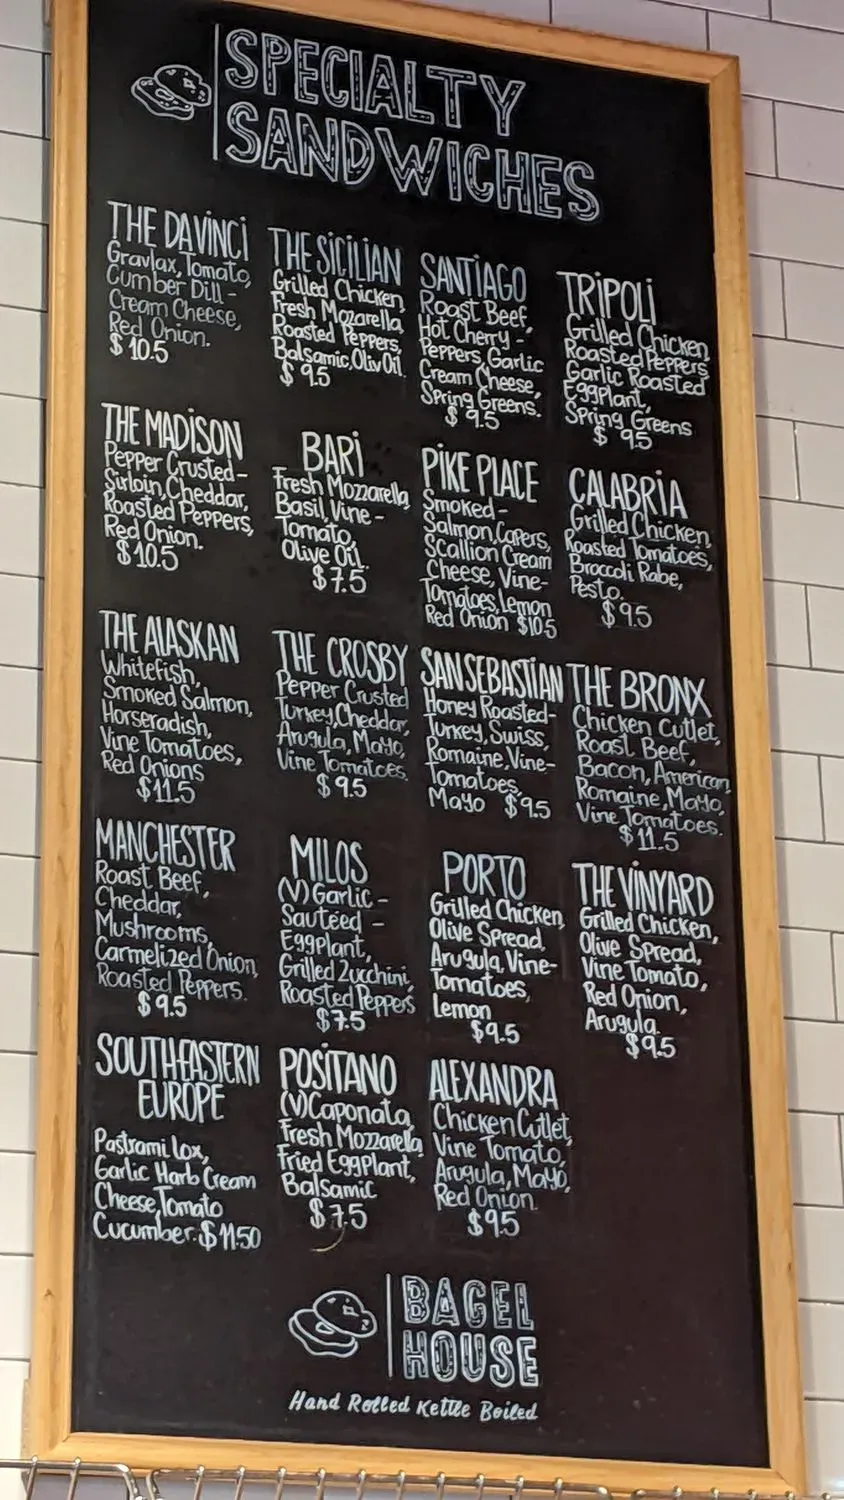 SPECIALTY
SANDWICHES
THE DAVINCI
Gravlax, Tomato,
Cumber Dill -
Cream Cheese,
Red Onion.
$ 10.5
THE SICILIAN
Grilled Chicken,
Fresh Mozarella,
Roasted Peppers,
Balsamic, Oliv Oil.
$ 9.5
SANTIAGO
Roast Beef,
Hot Cherry -
Peppers, Garlic
Cream Cheese,
Spring Greens.
$ 9.5
TRIPOLI
Grilled Chicken,
Roasted Peppers
Garlic Roasted
EggPlant,
Spring Greens
$ 9.5
THE MADISON
Pepper Crusted-
Sirloin, Cheddar,
Roasted Peppers,
Red Onion.
$10.5
BARI
Fresh Mozzarella,
Basil, Vine -
Tomato,
Olive Oil.
$7.5
PIKE PLACE
Smoked -
Salmon, Capers,
Scallion Cream
Cheese, Vine-
Tomatoes, Lemon
Red Onion $10.5
CALABRIA
Grilled Chicken,
Roasted Tomatoes,
Broccoli Rabe,
Pesto.
$9.5
THE ALASKAN
Whitefish,
Smoked Salmon,
Horseradish,
Vine Tomatoes,
Red Onions
$11.5
THE CROSBY
Pepper Crusted
Turkey, Cheddar,
Arugula, Mayo,
Vine Tomatoes.
$9.5
SAN SEBASTIAN
Honey Roasted-
Turkey, Swiss,
Romaine, Vine-
Tomatoes,
Mayo $9.5
THE BRONX
Chicken Cutlet,
Roast Beef,
Bacon, American,
Romaine, Mayo,
Vine Tomatoes.
$11.5
MANCHESTER
Roast Beef,
Cheddar,
Mushrooms,
Carmelized Onion,
Roasted Peppers.
$9.5
MILOS
(V) Garlic -
Sautéed -
EggPlant,
Grilled Zucchini,
Roasted Peppers
$7.5
PORTO
Grilled Chicken,
Olive Spread,
Arugula, Vine-
Tomatoes,
Lemon
$9.5
THE VINYARD
Grilled Chicken,
Olive Spread,
Vine Tomato,
Red Onion,
Arugula.
$9.5
SOUTH-EASTERN
EUROPE
Pastrami Lox,
Garlic Harb Cream
Cheese, Tomato
Cucumber. $11.50
POSITANO
(V) Caponata,
Fresh Mozzarella,
Fried EggPlant,
Balsamic
$7.5
ALEXANDRA
Chicken Cutlet,
Vine Tomato,
Arugula, Mayo,
Red Onion.
$9.5
BAGEL
HOUSE
Hand Rolled Kettle Boiled